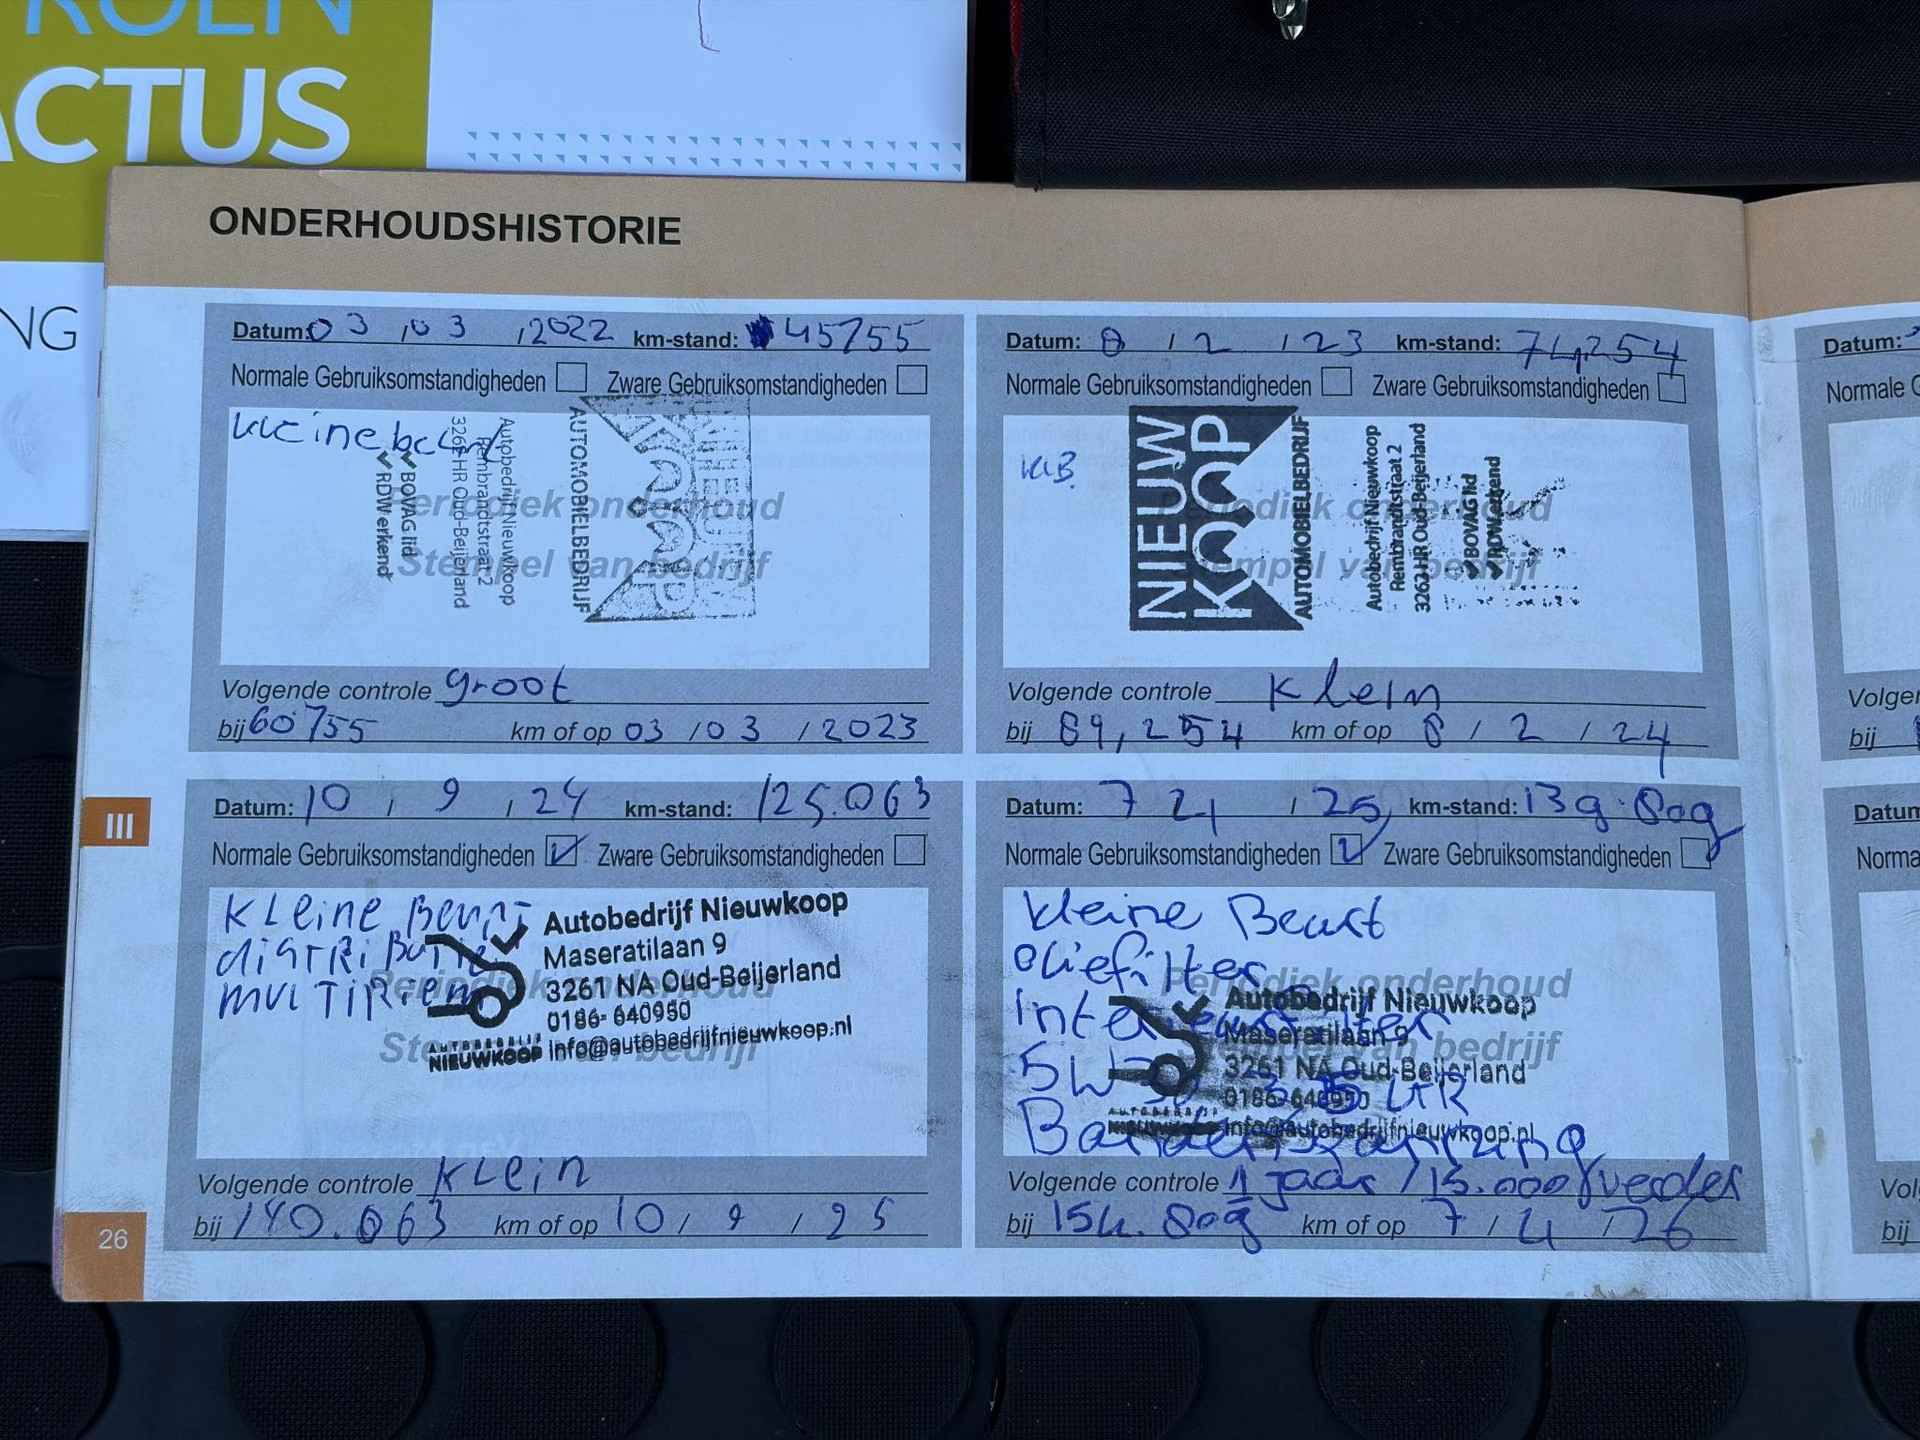 ROEN
ACTUS
NG
ONDERHOUDSHISTORIE
Datum: 03 / 03 / 2022 km-stand: 45755
Normale Gebruiksomstandigheden Zware Gebruiksomstandigheden
kleine beurt
Periodiek onderhoud
Stempel van bedrijf
NIEUW
KOOP
AUTOMOBIELBEDRIJF
Autobedrijf Nieuwkoop
Rembrandtstraat 2
3262 HR Oud-Beijerland
✓ BOVAG lid
✓ RDW erkend
Volgende controle groot
bij 60755 km of op 03 / 03 / 2023
Datum: 8 / 2 / 23 km-stand: 74,254
Normale Gebruiksomstandigheden Zware Gebruiksomstandigheden
KLB.
Periodiek onderhoud
Stempel van bedrijf
NIEUW
KOOP
AUTOMOBIELBEDRIJF
Autobedrijf Nieuwkoop
Rembrandtstraat 2
3262 HR Oud-Beijerland
✓ BOVAG lid
✓ RDW erkend
Volgende controle Klein
bij 89,254 km of op 8 / 2 / 24
III
Datum: 10 / 9 / 24 km-stand: 125.063
Normale Gebruiksomstandigheden ✓ Zware Gebruiksomstandigheden
Kleine Beurt
distributie
multiriem
Periodiek onderhoud
Stempel van bedrijf
Autobedrijf Nieuwkoop
Maseratilaan 9
3261 NA Oud-Beijerland
0186- 640950
info@autobedrijfnieuwkoop.nl
AUTOBEDRIJF
NIEUWKOOP
Volgende controle Klein
bij 140.063 km of op 10 / 9 / 25
Datum: 7 4 / 25 km-stand: 139.809
Normale Gebruiksomstandigheden ✓ Zware Gebruiksomstandigheden
kleine Beurt
oliefilter
Interieurfilter
5W30 3,5 LTR
Banden
Periodiek onderhoud
Stempel van bedrijf
Autobedrijf Nieuwkoop
Maseratilaan 9
3261 NA Oud-Beijerland
0186-640950
info@autobedrijfnieuwkoop.nl
AUTOBEDRIJF
NIEUWKOOP
Volgende controle 1 jaar / 15.000 verder
bij 154.809 km of op 7 / 4 / 26
26
Datum:
Normale G
Volgen
bij
Datum
Norma
Vol
bij